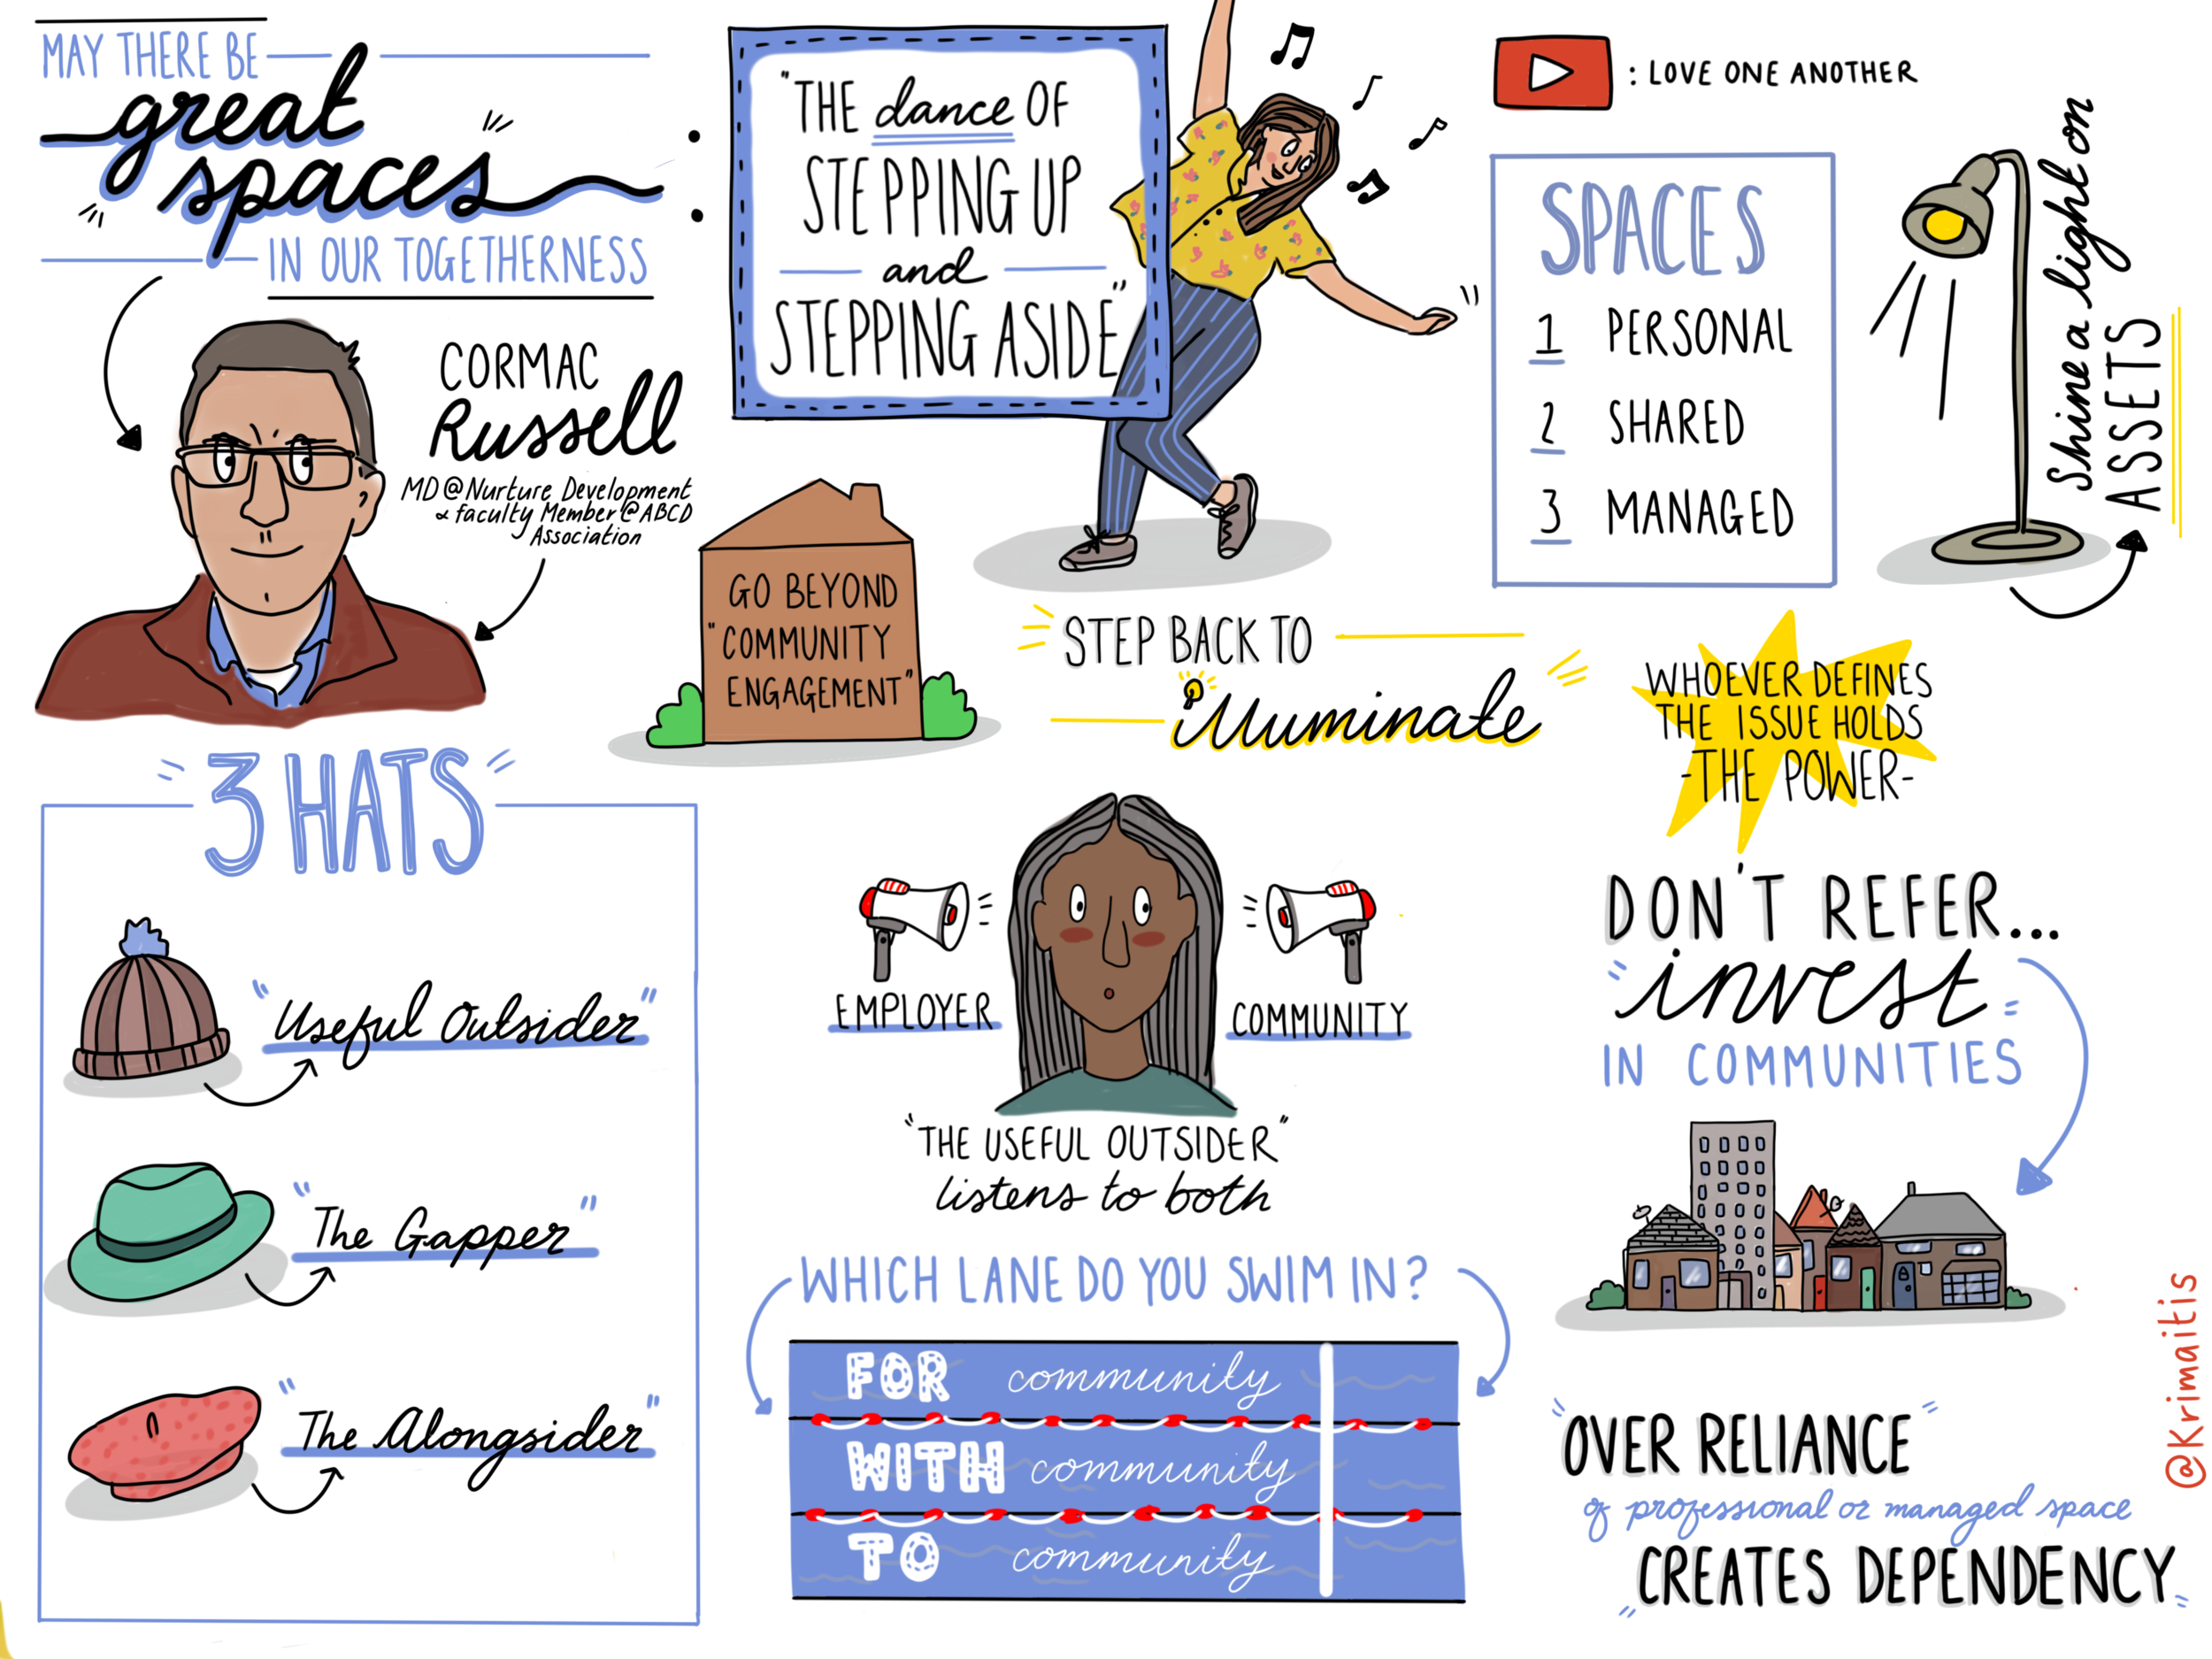 MAY THERE BE
great
spaces
IN OUR TOGETHERNESS
:
"THE dance OF
STEPPING UP
and
STEPPING ASIDE"
: LOVE ONE ANOTHER
SPACES
1 PERSONAL
2 SHARED
3 MANAGED
Shine a light on
ASSETS
CORMAC
Russell
MD @ Nurture Development
& faculty Member @ ABCD
Association
GO BEYOND
"COMMUNITY
ENGAGEMENT"
STEP BACK TO
illuminate
WHOEVER DEFINES
THE ISSUE HOLDS
-THE POWER-
3 HATS
"Useful Outsider"
"The Gapper"
"The Alongsider"
EMPLOYER
COMMUNITY
"THE USEFUL OUTSIDER"
listens to both
DON'T REFER...
"invest"
IN COMMUNITIES
WHICH LANE DO YOU SWIM IN?
FOR community
WITH community
TO community
"OVER RELIANCE"
of professional or managed space
"CREATES DEPENDENCY"
@Krimaitis